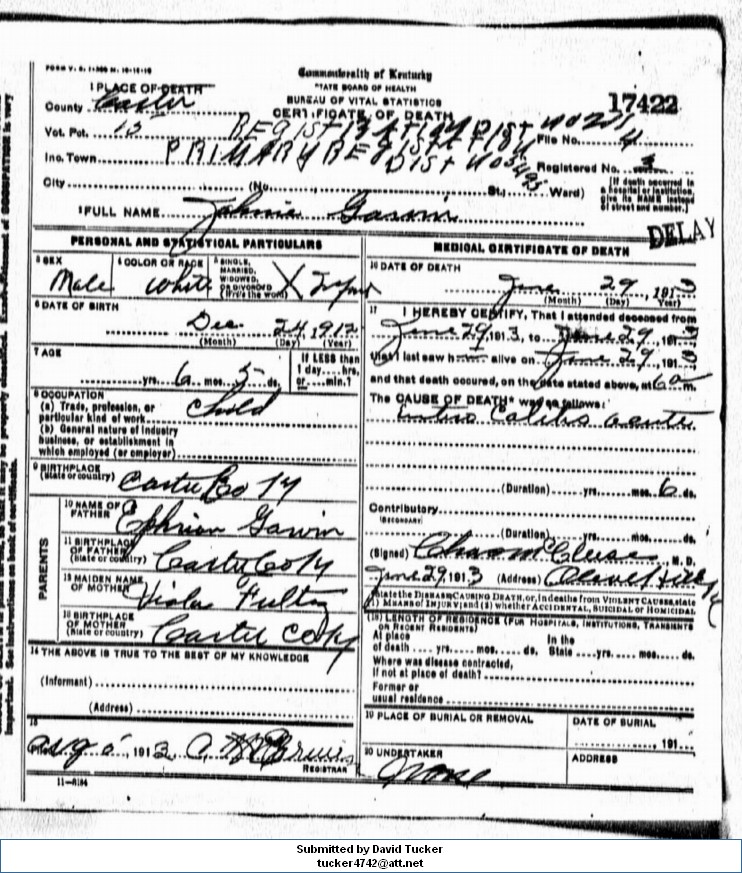 FORM V. S. 1-
Commonwealth of Kentucky
STATE BOARD OF HEALTH
BUREAU OF VITAL STATISTICS
CERTIFICATE OF DEATH
17422
1 PLACE OF DEATH
County Carter
Vot. Pct. 15
REGISTRATION DIST NO 221
File No. 4
Inc. Town
PRIMARY REGISTRATION DIST NO 3495
Registered No. 3
City (No. St. Ward)
[If death occurred in a hospital or institution, give its NAME instead of street and number.]
2 FULL NAME Johnie Garvin
DELAY
PERSONAL AND STATISTICAL PARTICULARS
3 SEX Male
4 COLOR OR RACE White
5 SINGLE, MARRIED, WIDOWED, OR DIVORCED (Write the word) X Infant
6 DATE OF BIRTH
Dec 24, 1912
(Month) (Day) (Year)
7 AGE
yrs. 6 mos. 5 ds.
If LESS than 1 day....hrs. or....min.?
8 OCCUPATION
(a) Trade, profession, or particular kind of work Child
(b) General nature of industry business, or establishment in which employed (or employer)
9 BIRTHPLACE
(State or country) Carter Co Ky
PARENTS
10 NAME OF FATHER Garvin
11 BIRTHPLACE OF FATHER (State or country) Carter Co Ky
12 MAIDEN NAME OF MOTHER Viola Fultz
13 BIRTHPLACE OF MOTHER (State or country) Carter Co Ky
14 THE ABOVE IS TRUE TO THE BEST OF MY KNOWLEDGE
(Informant)
(Address)
15
Aug 5, 1913
REGISTRAR
11-8184
MEDICAL CERTIFICATE OF DEATH
16 DATE OF DEATH
June 29, 1913
(Month) (Day) (Year)
17 I HEREBY CERTIFY, That I attended deceased from
June 29, 1913, to June 29, 1913
that I last saw h alive on June 29, 1913
and that death occured, on the date stated above, at 6 m.
The CAUSE OF DEATH* was as follows:
Entero Colitis acute
(Duration) yrs. mos. 6 ds.
Contributory
(SECONDARY)
(Duration) yrs. mos. ds.
(Signed) M.D.
June 29, 1913 (Address) Olive Hill Ky
*State the DISEASE CAUSING DEATH, or, in deaths from VIOLENT CAUSES, state (1) MEANS OF INJURY; and (2) whether ACCIDENTAL, SUICIDAL or HOMICIDAL
(18) LENGTH OF RESIDENCE (FOR HOSPITALS, INSTITUTIONS, TRANSIENTS OR RECENT RESIDENTS)
At place of death yrs. mos. ds. In the State yrs. mos. ds.
Where was disease contracted, if not at place of death?
Former or usual residence
19 PLACE OF BURIAL OR REMOVAL
DATE OF BURIAL
, 191
20 UNDERTAKER
None
ADDRESS
Submitted by David Tucker
tucker4742@att.net